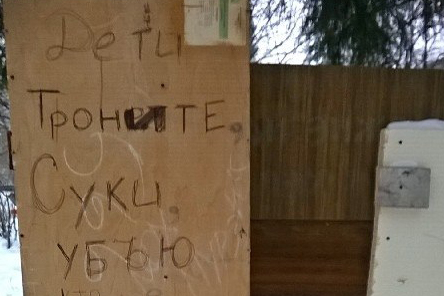 Дети
Троните
Суки,
убъю